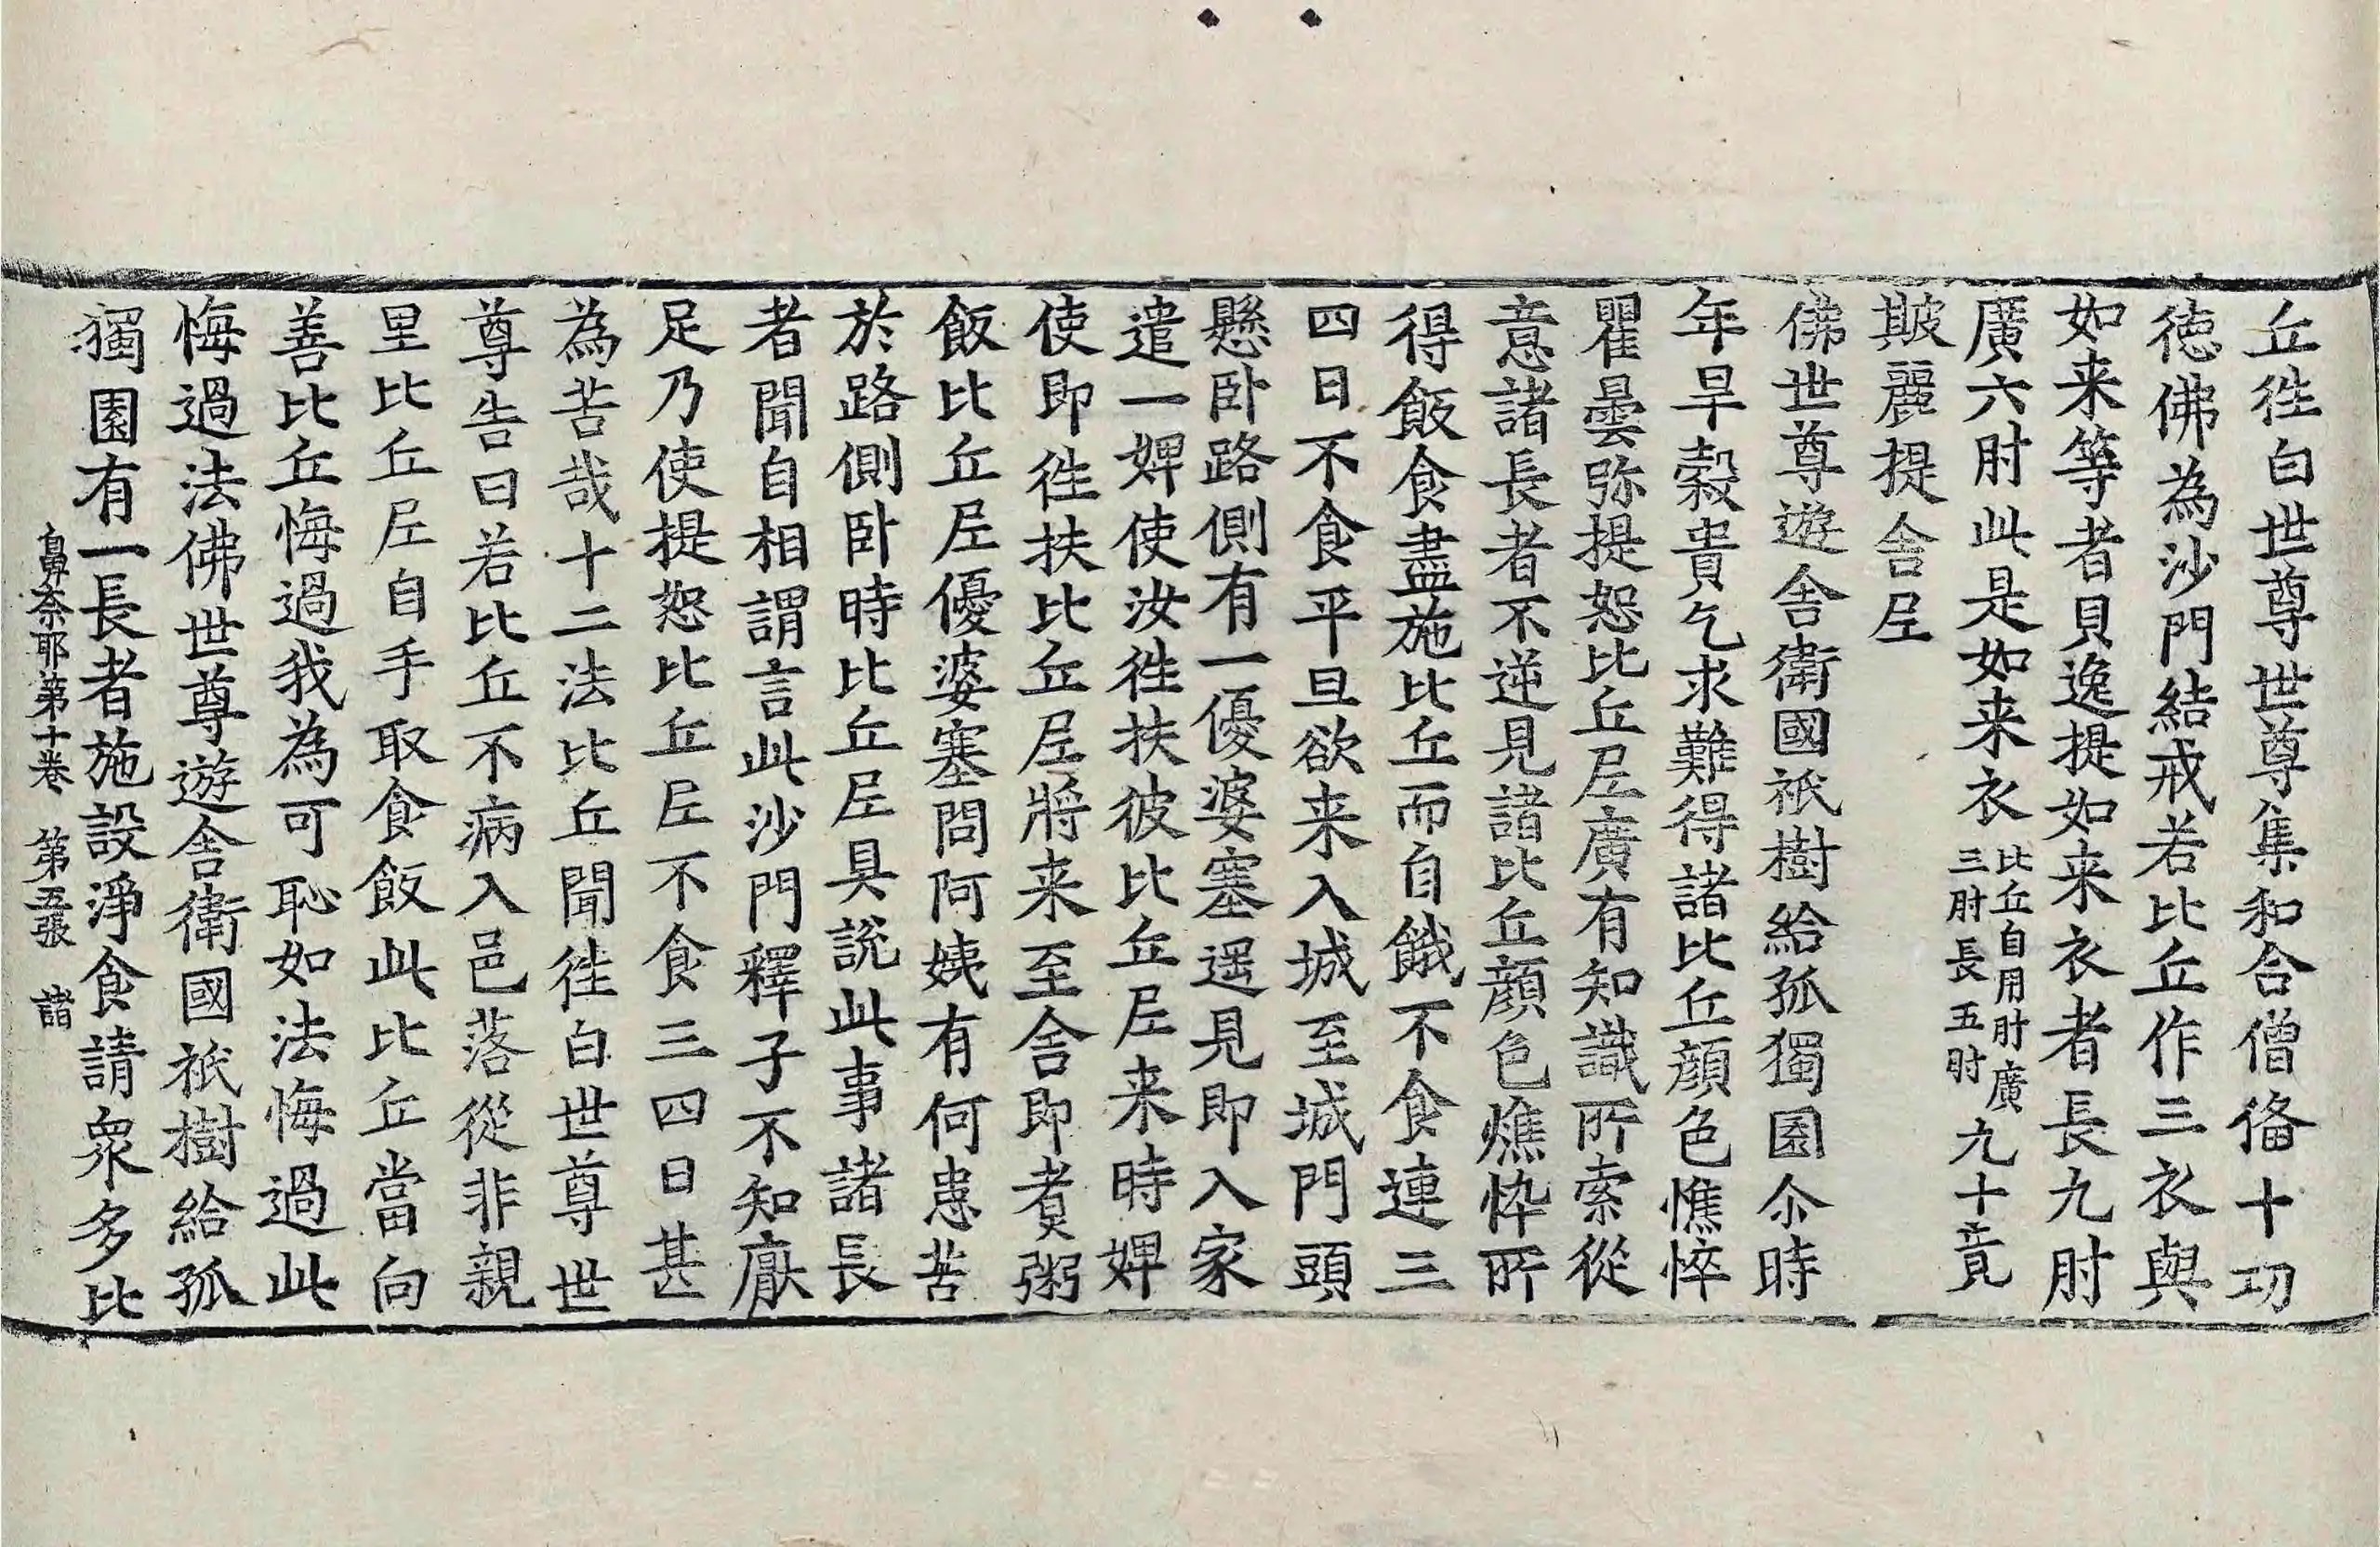 丘徃白世尊世尊集和合僧俻十功
徳佛為沙門結戒若比丘作三衣與
如来等者貝逸提如来衣者長九肘
廣六肘此是如来衣比丘自用肘廣三肘長五肘九十竟
䟦麗提舍𡰱
佛世尊遊舍衛國祇樹給孤獨園尒時
年旱穀貴乞求難得諸比丘顔色憔悴
瞿曇弥提恕比丘𡰱廣有知識所索從
意諸長者不逆見諸比丘顔色燋忰所
得飯食盡施比丘而自餓不食連三
四日不食平旦欲来入城至城門頭
懸卧路側有一優婆塞遥見即入家
遣一婢使汝徃扶彼比丘𡰱来時婢
使即徃扶比丘𡰱將来至舍即煑粥
飯比丘𡰱優婆塞問阿姨有何患苦
於路側卧時比丘𡰱具説此事諸長
者聞自相謂言此沙門釋子不知厭
足乃使提恕比丘𡰱不食三四日甚
為苦哉十二法比丘聞徃白世尊世
尊告曰若比丘不病入邑落從非親
里比丘𡰱自手取食飯此比丘當向
善比丘悔過我為可恥如法悔過此
悔過法佛世尊遊舍衛國祇樹給孤
獨園有一長者施設淨食請衆多比
鼻奈耶第十卷　第五張　諸